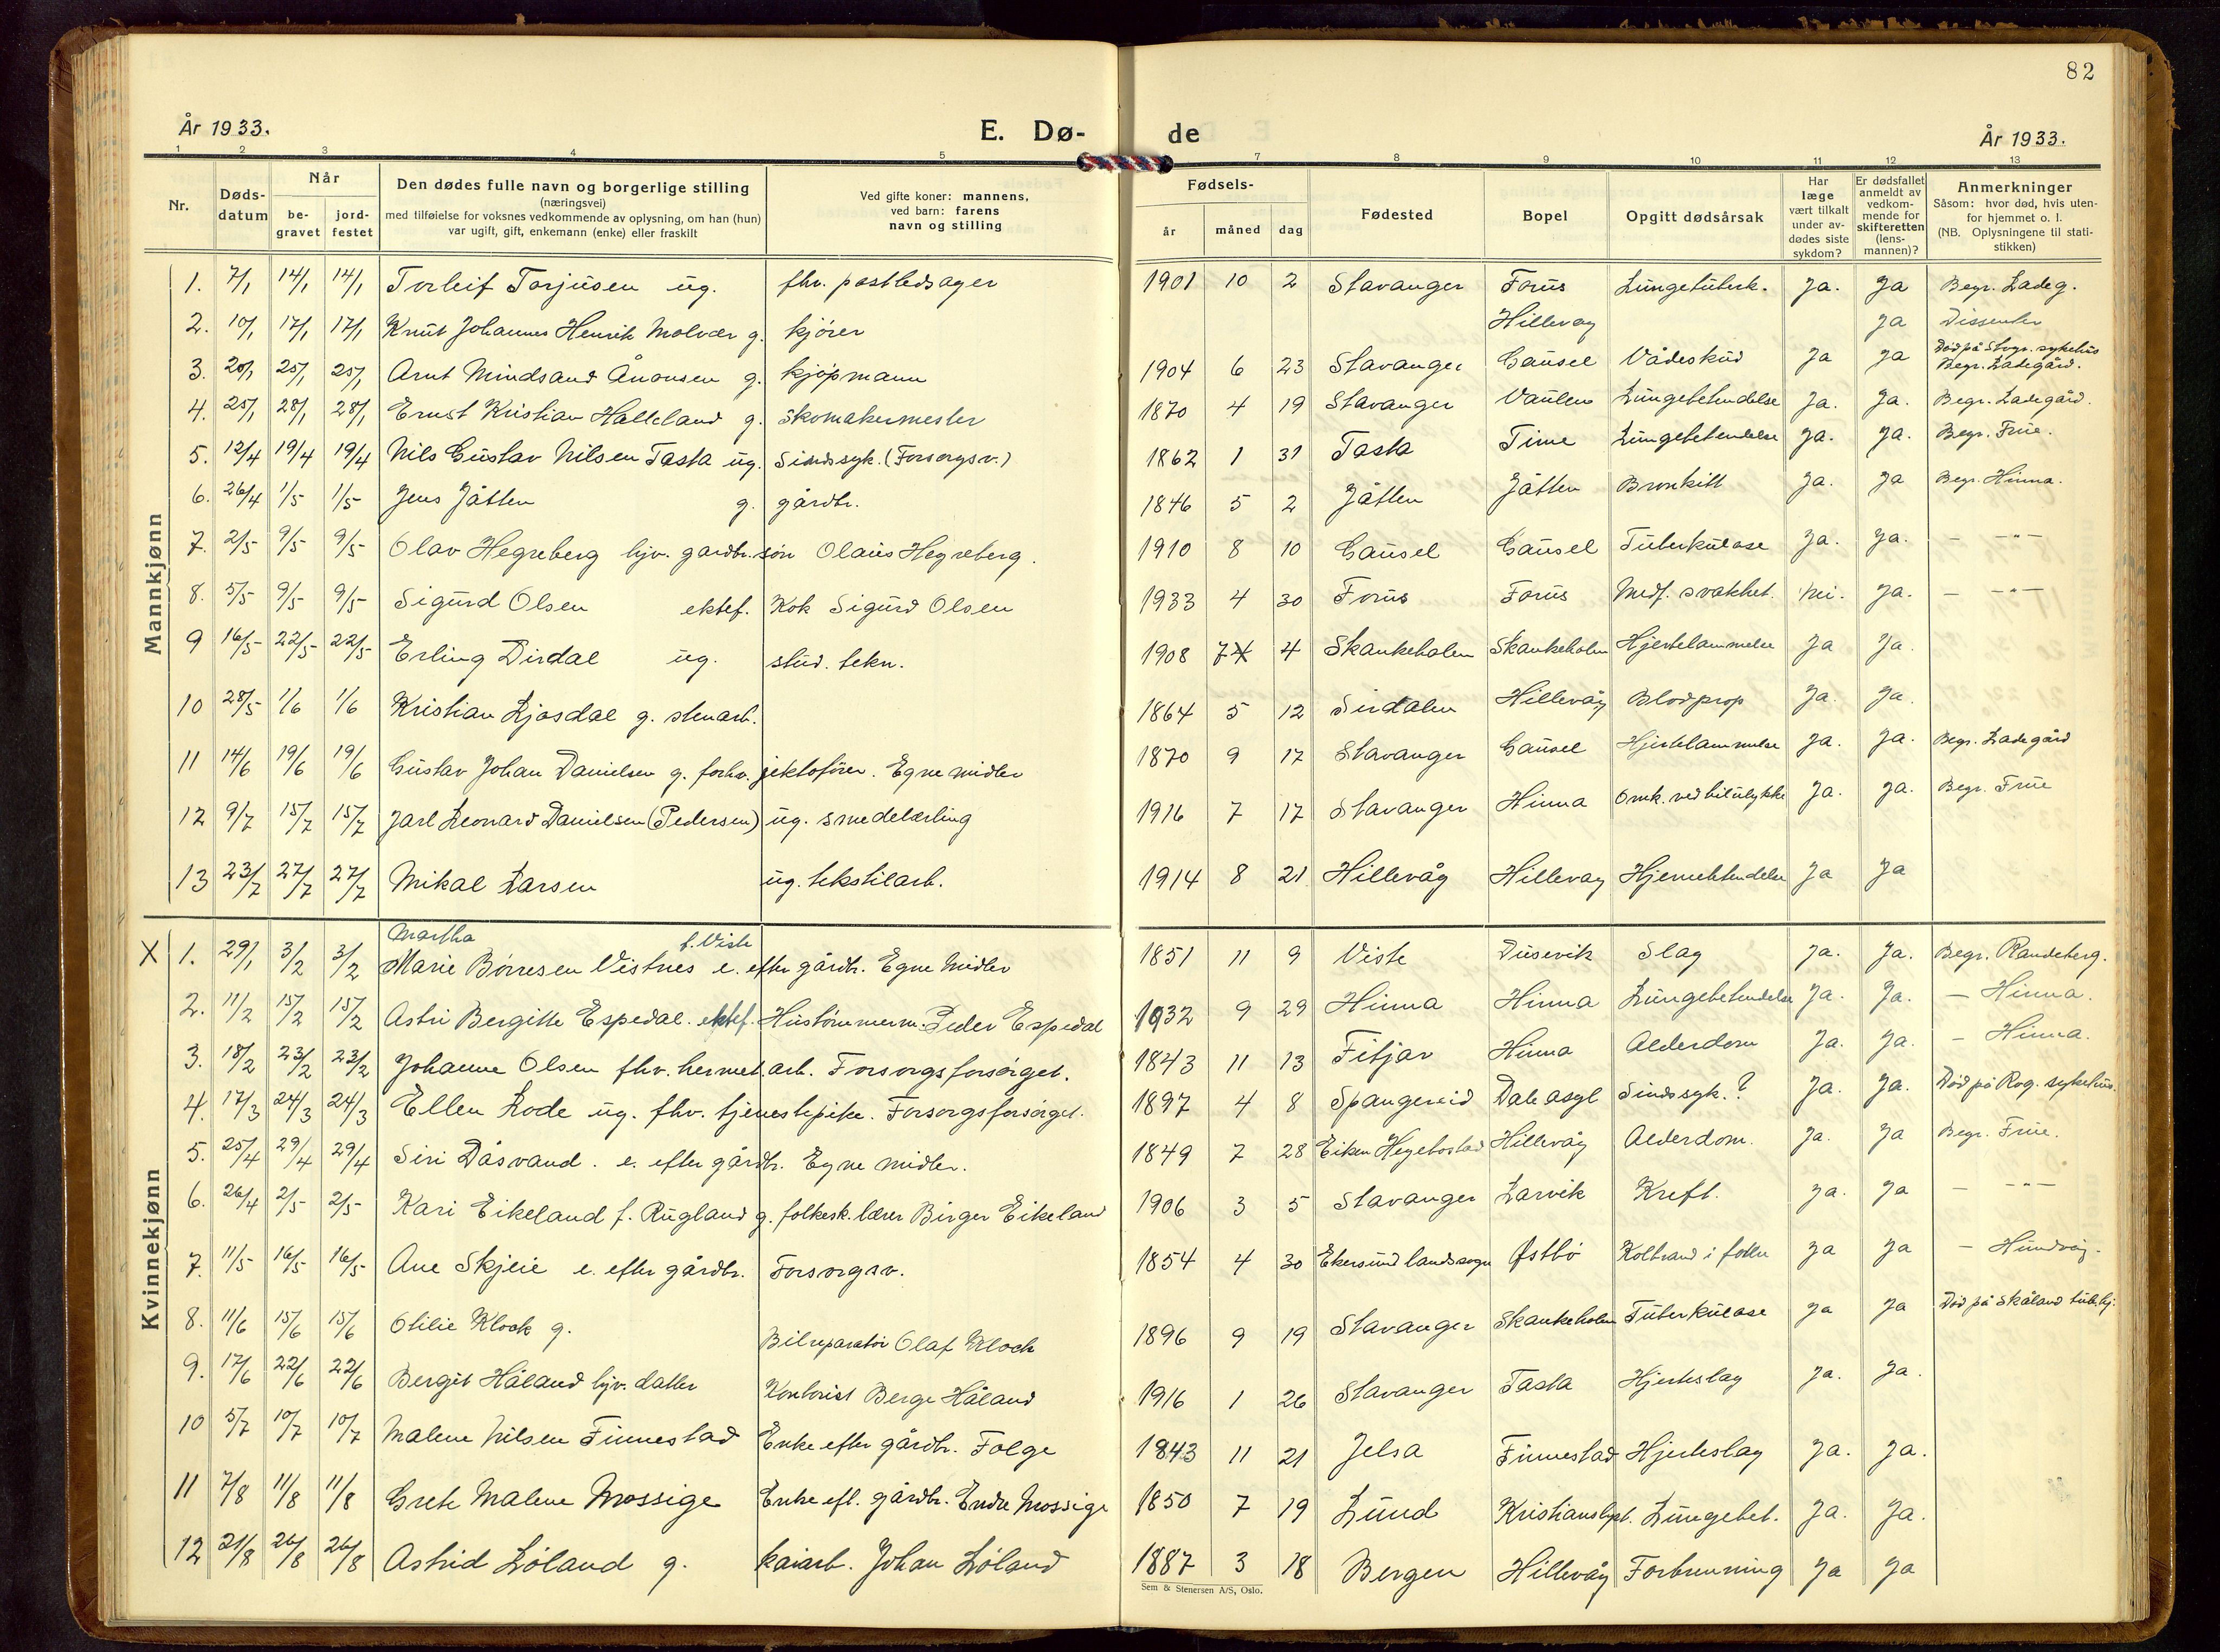 82
År 1933. E. Dø- de År 1933.
1 2 3 4 5 7 8 9 10 11 12 13
Nr. Døds-datum Når be-gravet jord-festet Den dødes fulle navn og borgerlige stilling (næringsvei) med tilføielse for voksnes vedkommende av oplysning, om han (hun) var ugift, gift, enkemann (enke) eller fraskilt Ved gifte koner: mannens, ved barn: farens navn og stilling Fødsels- år måned dag Fødested Bopel Opgitt dødsårsak Har læge vært tilkalt under av-dødes siste sykdom? Er dødsfallet anmeldt av vedkom-mende for skifteretten (lens-mannen)? Anmerkninger Såsom: hvor død, hvis uten-for hjemmet o. l. (NB. Oplysningene til stati-stikken)
Mannkjønn
1. 7/1 14/1 14/1 Torleif Torjusen ug. fhv. postledsager 1901 10 2 Stavanger Forus Lungetuberk. Ja. Ja Begr. Ladeg.
2. 10/1 17/1 17/1 Knut Johannes Henrik Molvær g. kjörer Hillevag Ja Dissenter
3. 20/1 25/1 25/1 Arnt Mindsand Ånonsen g. kjöpmann 1904 6 23 Stavanger Gausel Vådeskud Ja Ja Död på Stvgr. sykehus Begr. Ladegård.
4. 25/1 28/1 28/1 Ernst Kristian Halleland g. Skomakermester 1870 4 19 Stavanger Vaulen Lungebetendelse Ja. Ja. Begr. Ladegård.
5. 12/4 19/4 19/4 Nils Gustav Nilsen Tasta ug. Sindssyk. (Forsorgsv.) 1862 1 31 Tasta Time Lungebetendelse Ja. Ja. Begr. Frue.
6. 26/4 1/5 1/5 Jens Jåtten g. gårdbr. 1846 5 2 Jåtten Jåtten Bronkitt Ja. Ja Begr. Hinna.
7. 2/5 9/5 9/5 Olav Hegreberg hjv. gardbr. sön Olaus Hegreberg. 1910 8 10 Gausel Gausel Tuberkulose Ja. Ja. — -"-
8. 5/5 9/5 9/5 Sigurd Olsen ektef. Kok Sigurd Olsen 1933 4 30 Forus Forus Medf. svakhet. Nei. Ja. — -"-
9 16/5 22/5 22/5 Erling Dirdal ug. stud. tekn. 1908 7 4 Skankeholen Skankeholen Hjertelammelse Ja Ja.
10 28/5 1/6 1/6 Kristian Ljosdal g. stenarb. 1864 5 12 Sirdalen Hillevåg Blodprop Ja. Ja.
11 14/6 19/6 19/6 Gustav Johan Danielsen g. forhv. jektefører. Egne midler 1870 9 17 Stavanger Gausel Hjertelammelse Ja. Ja. Begr. Ladegård
12 9/7 15/7 15/7 Jarl Leonard Danielsen (Pedersen) ug. smedelærling 1916 7 17 Stavanger Hinna Omk. ved bilulykke Ja. Ja. Begr. Frue
13 23/7 27/7 27/7 Mikal Larsen ug. tekstilarb. 1914 8 21 Hillevåg Hillevag Hjernebetendelse Ja Ja
Kvinnekjønn
Martha f. Viste
X 1. 29/1 3/2 3/2 Marie Börresen Vistnes e. efter gårdbr. Egne Midler 1851 11 9 Viste Dusevik Slag Ja. Ja. Begr. Randeberg.
2. 11/2 15/2 15/2 Astri Bergitte Espedal. ektef. Hustömmerm. Peder Espedal 1932 9 29 Hinna Hinna Lungebetendelse Ja. Ja. — Hinna.
3. 18/2 23/2 23/2 Johanne Olsen fhv. hermet. arb. Forsorgsforsörget. 1843 11 13 Fitjar Hinna Alderdom Ja. Ja. — Hinna.
4. 17/3 24/3 24/3 Ellen Lode ug. fhv. tjenestepike. Forsorgsforsörget. 1897 4 8 Spangereid Dale asyl Sindssyk.? Ja. Ja. Död på Rog. sykehus.
5. 25/4 29/4 29/4 Siri Dåsvand. e. efter gårdbr. Egne midler. 1849 7 28 Eiken Hegebostad Hillevåg Alderdom. Ja. Ja Begr. Frue.
6. 26/4 2/5 2/5 Kari Eikeland f. Rugland g. folkesk. lærer Birger Eikeland 1906 3 5 Stavanger Larvik Kreft. Ja. Ja — -"-
7. 11/5 16/5 16/5 Ane Skjeie e. efter gårdbr. Forsorgsv. 1854 4 30 Ekersund landssogn Østbö Kolbrand i foten Ja Ja — Hundvåg.
8. 11/6 15/6 15/6 Otilie Klock g. Bilreparatör Olaf Klock 1896 9 19 Stavanger Skankeholen Tuberkulose Ja Ja Död på Skåland tub.hj.
9. 17/6 22/6 22/6 Bergit Håland hjv. datter Kontorist Berge Håland 1916 1 26 Stavanger Tasta Hjerteslag Ja. Ja.
10 5/7 10/7 10/7 Malene Nilsen Finnestad Enke efter gårdbr. Folge 1843 11 21 Jelsa Finnestad Hjerteslag Ja. Ja.
11 7/8 11/8 11/8 Grete Malene Mossige Enke eft. gårdbr. Endre Mossige 1850 7 19 Lund Kristianslyst. Lungebet. Ja. Ja.
12 21/8 26/8 26/8 Astrid Löland g. kaiarb. Johan Löland 1887 3 18 Bergen Hillevåg Forbrenning Ja Ja
Sem & Stenersen A/S, Oslo.